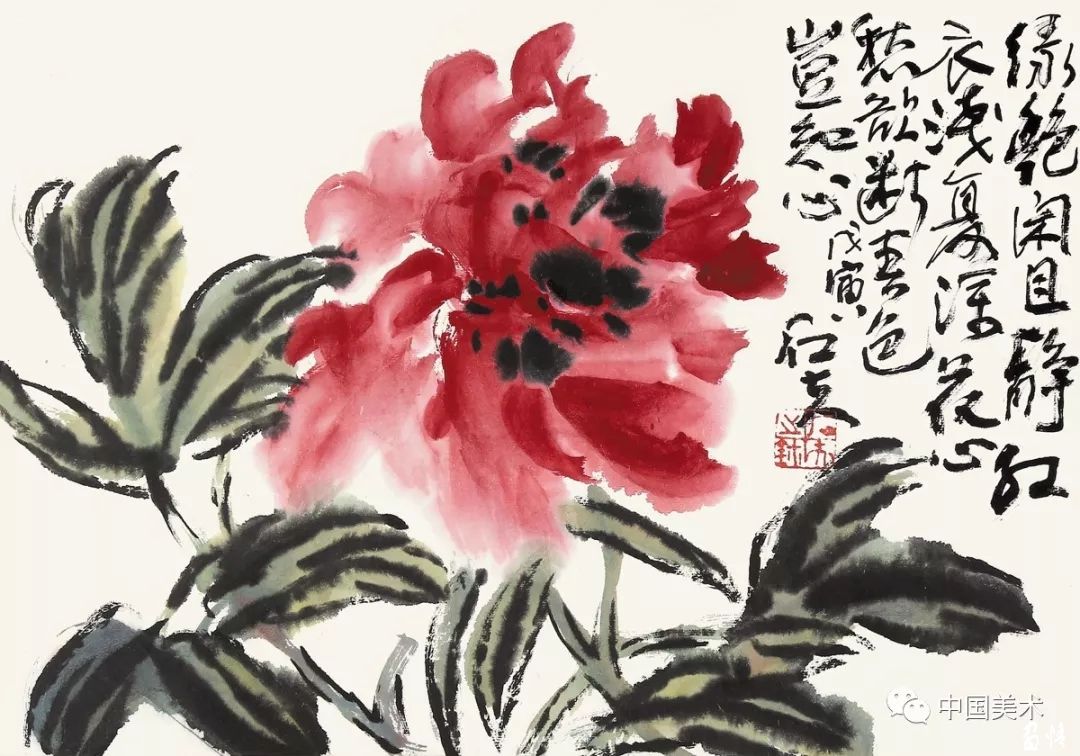 绿艳闲且静红
衣浅复深花心
愁欲断春色
岂知心
戊寅
中国美术